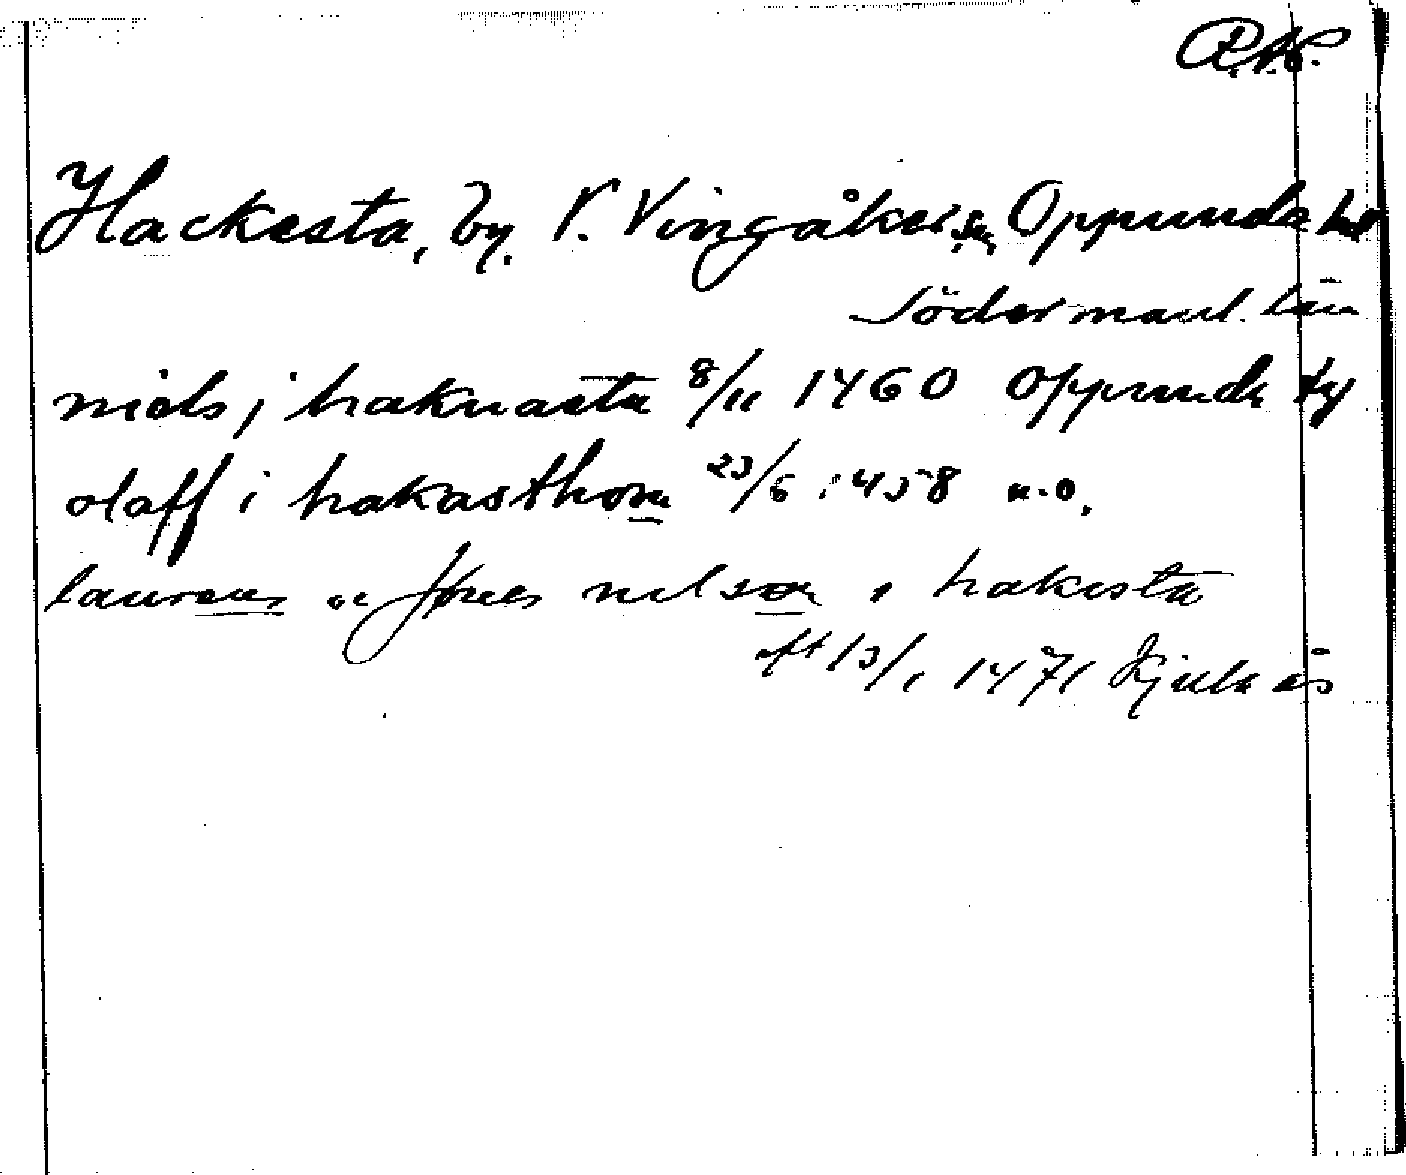 R.A.P.
Hackesta, by. V. Vingåker sn, Oppunda hd
Södermanl. län
niels j haknasta 8/11 1460 Oppunda ty
olaff i hakasthom 23/6 1458 u.o.
laurens oc Jönes nilson i hakesta
aft 13/1 1471 Kjulaås